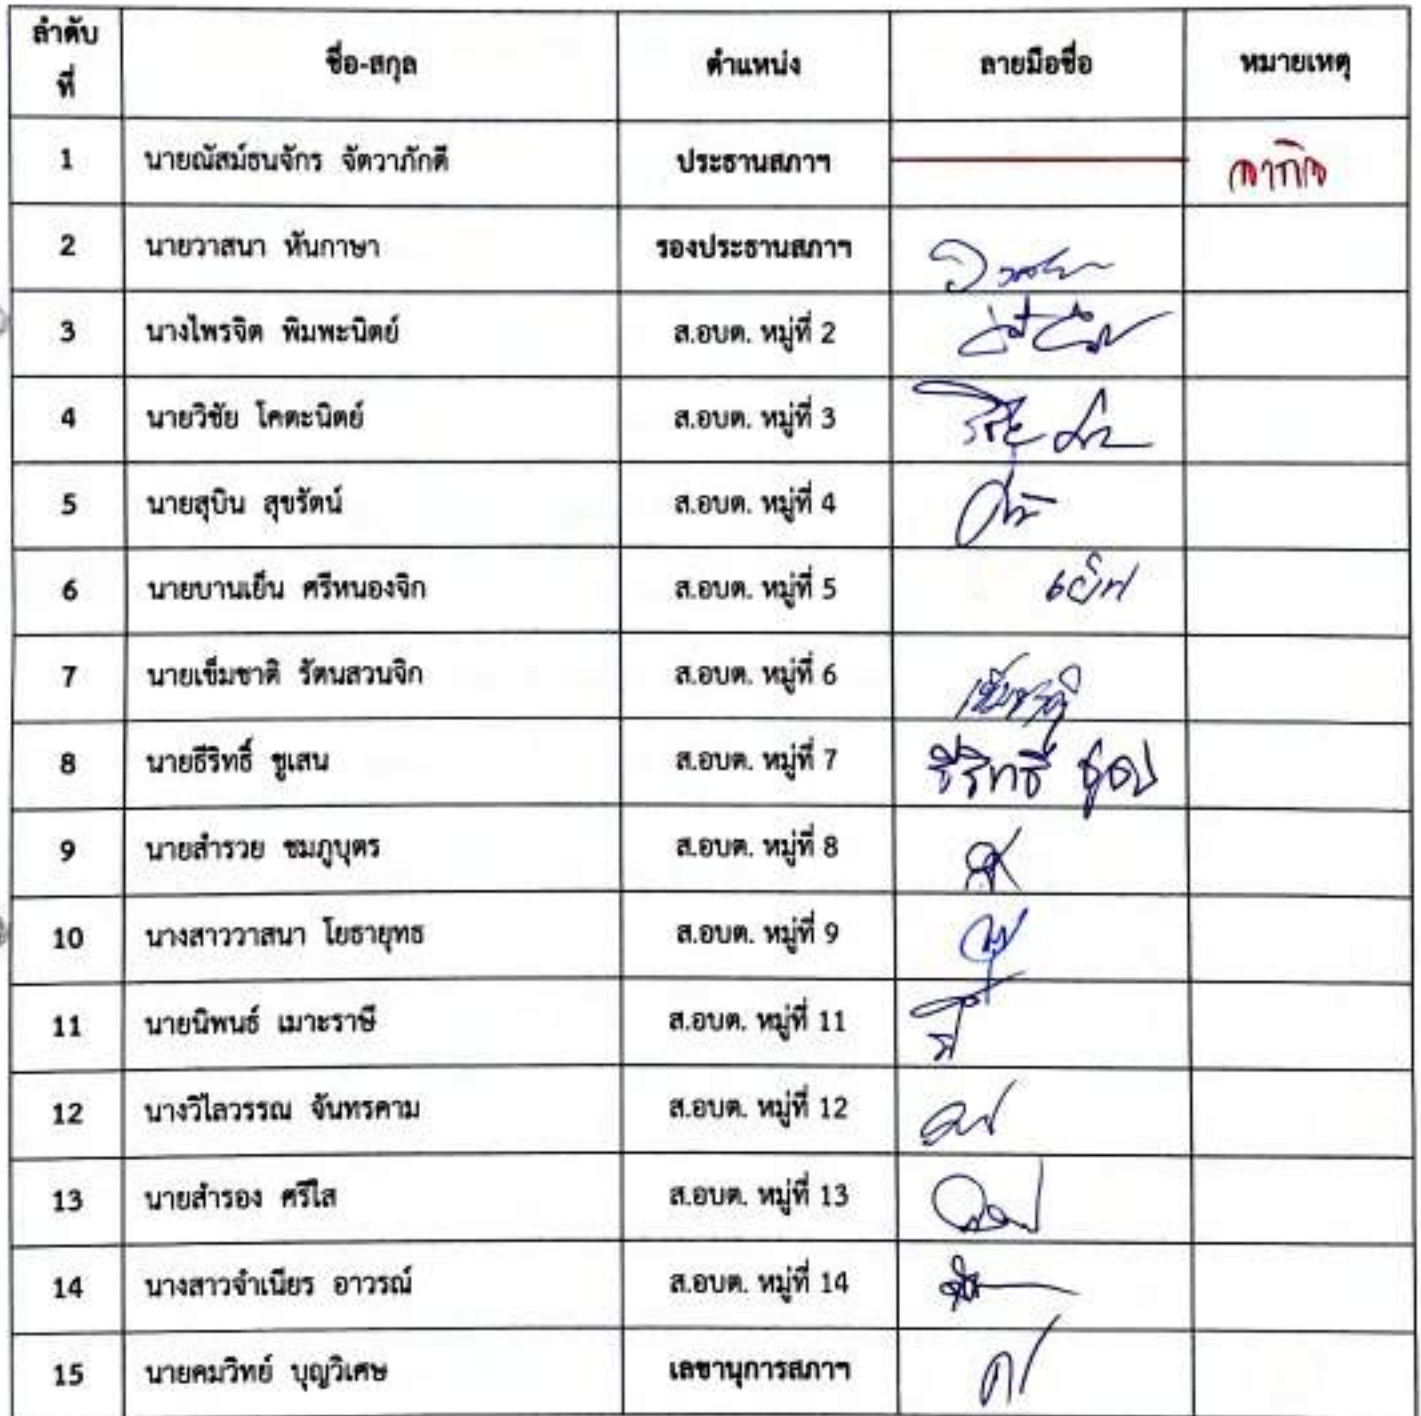 ลำดับที่ ชื่อ-สกุล ตำแหน่ง ลายมือชื่อ หมายเหตุ
1 นายณัสม์ธนจักร จัตวาภักดี ประธานสภาฯ ลากิจ
2 นายวาสนา หันกาษา รองประธานสภาฯ
3 นางไพรจิต พิมพะนิตย์ ส.อบต. หมู่ที่ 2
4 นายวิชัย โคตะนิตย์ ส.อบต. หมู่ที่ 3
5 นายสุบิน สุขรัตน์ ส.อบต. หมู่ที่ 4
6 นายบานเย็น ศรีหนองจิก ส.อบต. หมู่ที่ 5 เย็น
7 นายเข็มชาติ รัตนสวนจิก ส.อบต. หมู่ที่ 6 เข็มชาติ
8 นายธีริทธิ์ ชูเสน ส.อบต. หมู่ที่ 7 ธีริทธิ์
9 นายสำรวย ชมภูบุตร ส.อบต. หมู่ที่ 8
10 นางสาววาสนา โยธายุทธ ส.อบต. หมู่ที่ 9
11 นายนิพนธ์ เมาะราษี ส.อบต. หมู่ที่ 11
12 นางวิไลวรรณ จันทรคาม ส.อบต. หมู่ที่ 12
13 นายสำรอง ศรีใส ส.อบต. หมู่ที่ 13
14 นางสาวจำเนียร อาวรณ์ ส.อบต. หมู่ที่ 14
15 นายคมวิทย์ บุญวิเศษ เลขานุการสภาฯ